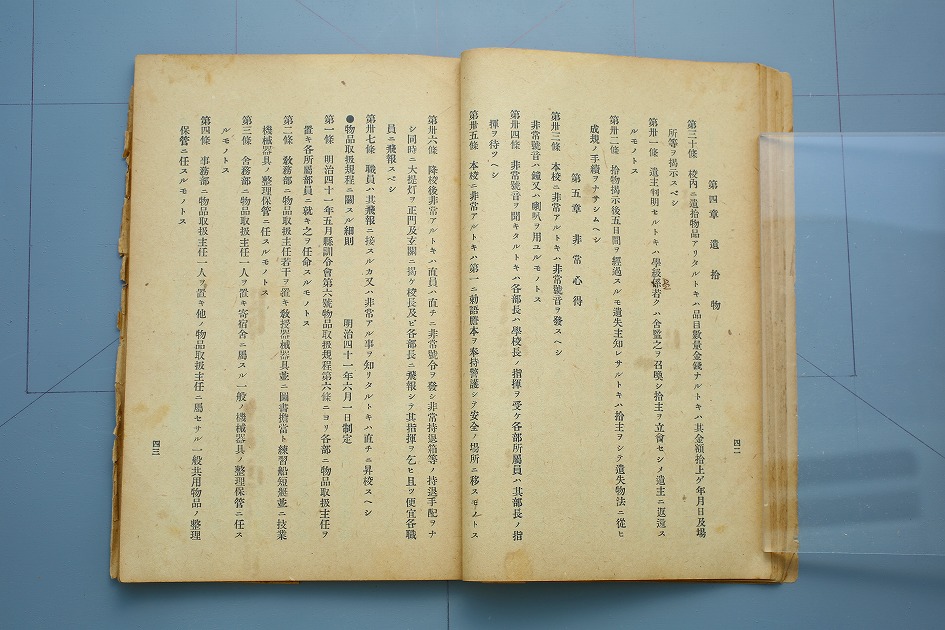 第四章 遺拾物
第三十條 校内ニ遺拾物品アリタルトキハ品目數量金錢ナルトキハ其金額拾上ゲ年月日及場
所等ヲ揭示スベシ
第卅一條 遺主判明セルトキハ學級係若クハ舍監之ヲ召喚シ拾主ヲ立會セシメ遺主ニ返還ス
ルモノトス
第卅二條 拾物揭示後五日間ヲ經過スルモ遺失主知レサルトキハ拾主ヲシテ遺失物法ニ從ヒ
成規ノ手續ヲナサシムヘシ
第五章 非常心得
第卅三條 本校ニ非常アルトキハ非常號音ヲ發スヘシ
非常號音ハ鐘又ハ喇叭ヲ用ユルモノトス
第卅四條 非常號音ヲ聞キタルトキハ各部長ハ學校長ノ指揮ヲ受ケ各部所屬員ハ其部長ノ指
揮ヲ待ツヘシ
第卅五條 本校ニ非常アルトキハ第一ニ勅語謄本ヲ奉持警護シテ安全ノ場所ニ移スモノトス
四二
第卅六條 降校後非常アルトキハ直員ハ直チニ非常號令ヲ發シ非常持退箱等ノ持退手配ヲナ
シ同時ニ大提灯ヲ正門及玄關ニ揭ケ校長及ビ各部長ニ飛報シテ其指揮ヲ乞ヒ且ツ便宜各職
員ニ飛報スベシ
第卅七條 職員ハ其飛報ニ接スルカ又ハ非常アル事ヲ知リタルトキハ直チニ昇校スヘシ
●物品取扱規程ニ關スル細則 明治四十一年六月一日制定
第一條 明治四十一年五月縣訓令會第六號物品取扱規程第六條ニヨリ各部ニ物品取扱主任ヲ
置キ各所屬部員ニ就キ之ヲ任命スルモノトス
第二條 敎務部ニ物品取扱主任若干ヲ置キ敎授器械器具並ニ圖書擔當ト練習船短艇並ニ技業
機械器具ノ整理保管ニ任スルモノトス
第三條 舍務部ニ物品取扱主任一人ヲ置キ寄宿舍ニ屬スル一般ノ機械器具ノ整理保管ニ任ス
ルモノトス
第四條 事務部ニ物品取扱主任一人ヲ置キ他ノ物品取扱主任ニ屬セサル一般共用物品ノ整理
保管ニ任スルモノトス
四三